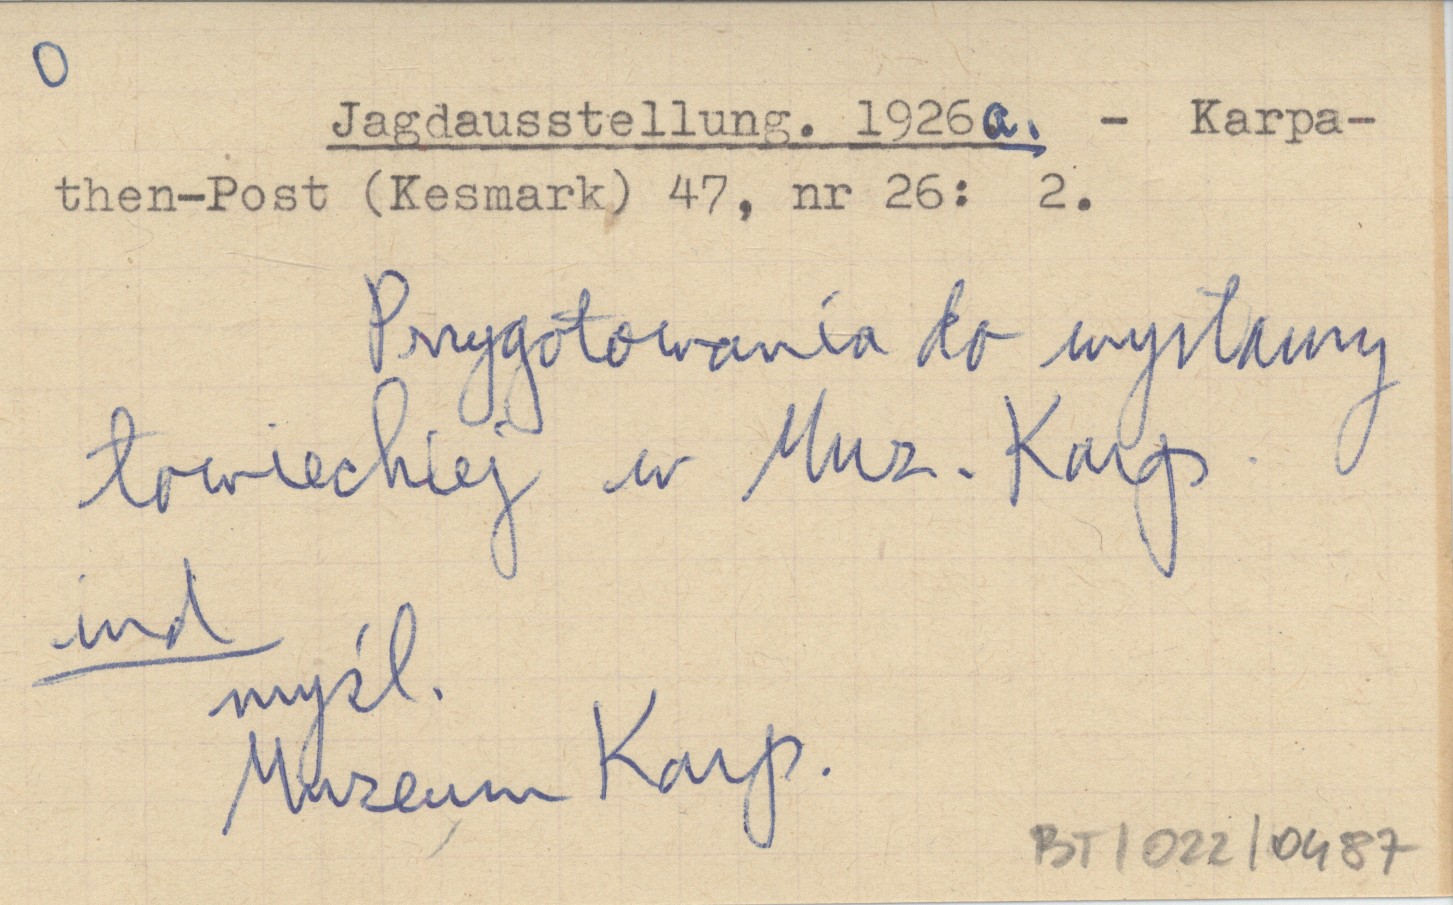 O
Jagdausstellung. 1926a. - Karpa-
then-Post (Kesmark) 47, nr 26: 2.
Przygotowania do wystawy
łowieckiej w Muz. Karp.
ind
myśl.
Muzeum Karp.
BT/022/0487